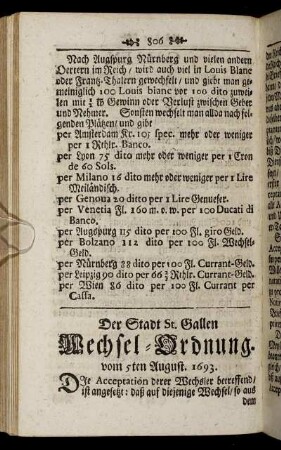 806
Nach Augspurg Nürnberg und vielen andern
Oertern im Reich / wird auch viel in Louis Blanc
oder Frantz-Thalern gewechselt / und giebt man ge-
meiniglich 100 Louis blanc vor 100 dito zuwei-
len mit ¾ Gewinn oder Verlust zwischen Geber
und Nehmer. Sonsten wechselt man allda nach fol-
genden Plätzen / und gibt
per Amsterdam Kr. 105 spec. mehr oder weniger
per 1 Rthlr. Banco.
per Lyon 75 dito mehr oder weniger per 1 Cron
de 60 Sols.
per Milano 16 dito mehr oder weniger per 1 Lire
Meiländisch.
per Genoua 20 ditto per 1 Lire Genueser.
per Venetia Fl. 160 m. o. w. per 100 Ducati di
Banco.
per Augspurg 115 dito per 100 Fl. giro Geld.
per Bolzano 112 dito per 100 Fl. Wechsel-
Geld.
per Nürnberg 88 dito per 100 Fl. Currant-Geld.
per Leipzig 90 dito per 66⅔ Rthlr. Currant-Geld.
per Wien 86 dito per 100 Fl. Currant per
Cassa.
Der Stadt St. Gallen
Wechsel-Ordnung.
vom 5ten August. 1693.
Die Acceptation derer Wechsler betreffend /
ist angesetzt: daß auf diejenige Wechsel / so aus
dem